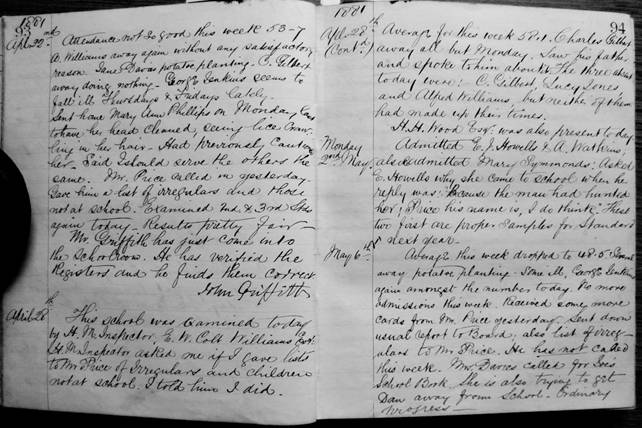 1881
93
Apl. 22nd
Attendance not so good this week 53-7
A. Williams away again without any satisfactory
reason. Jane Davas potatoe planting. C. Gilbert
away doing nothing. George Jenkins seems to
fall ill Thursdays & Fridays lately.
Sent home Mary Ann Phillips on Monday last
to have her head cleaned, seeing lice craw-
ling in her hair. Had previously cautioned
her. Said I should serve the others the
same. Mr. Price called in yesterday.
Gave him a list of irregulars and those
not at school. Examined 2nd & 3rd Stds
again today. Results pretty fair.
Mr. Griffith has just come into
the schoolroom. He has verified the
Registers and he finds them correct.
John Griffith
April 28th
This school was examined today
by H. M. Inspector, E. W. Colt Williams Esqr.
H. M. Inspector asked me if I gave lists
to Mr Price of Irregulars and children
not at school. I told him I did.
1881
94
Apl. 28th
(Contd)
Average for this week 58.1. Charles Gilbert
away all but Monday. Saw his father
and spoke to him about it. The three absent
today were: C. Gilbert, Lucy Jones,
and Alfred Williams, but neither of them
had made up their times.
H. H. Wood Esq. was also present today
Monday
2nd May
Admitted E. J. Howells & A. Watkins;
also admitted Mary Symmonds; Asked
E. Howells why she came to school when he
reply was: "Because the man had hunted
her; Price his name is, I do think." These
two first are proper samples for Standard
next year.
May 6th
Average this week dropped to 48.5. Several
away potatoe planting. Some ill, George Jenkins
again amongst the number today. No more
admissions this week. Received some more
cards from Mr. Price yesterday. Sent down
usual report to Board; also list of irreg-
ulars to Mr Price. He has not called
this week. Mrs. Davies called for
School Book. She is also trying to get
Dan away from School. Ordinary
Progress